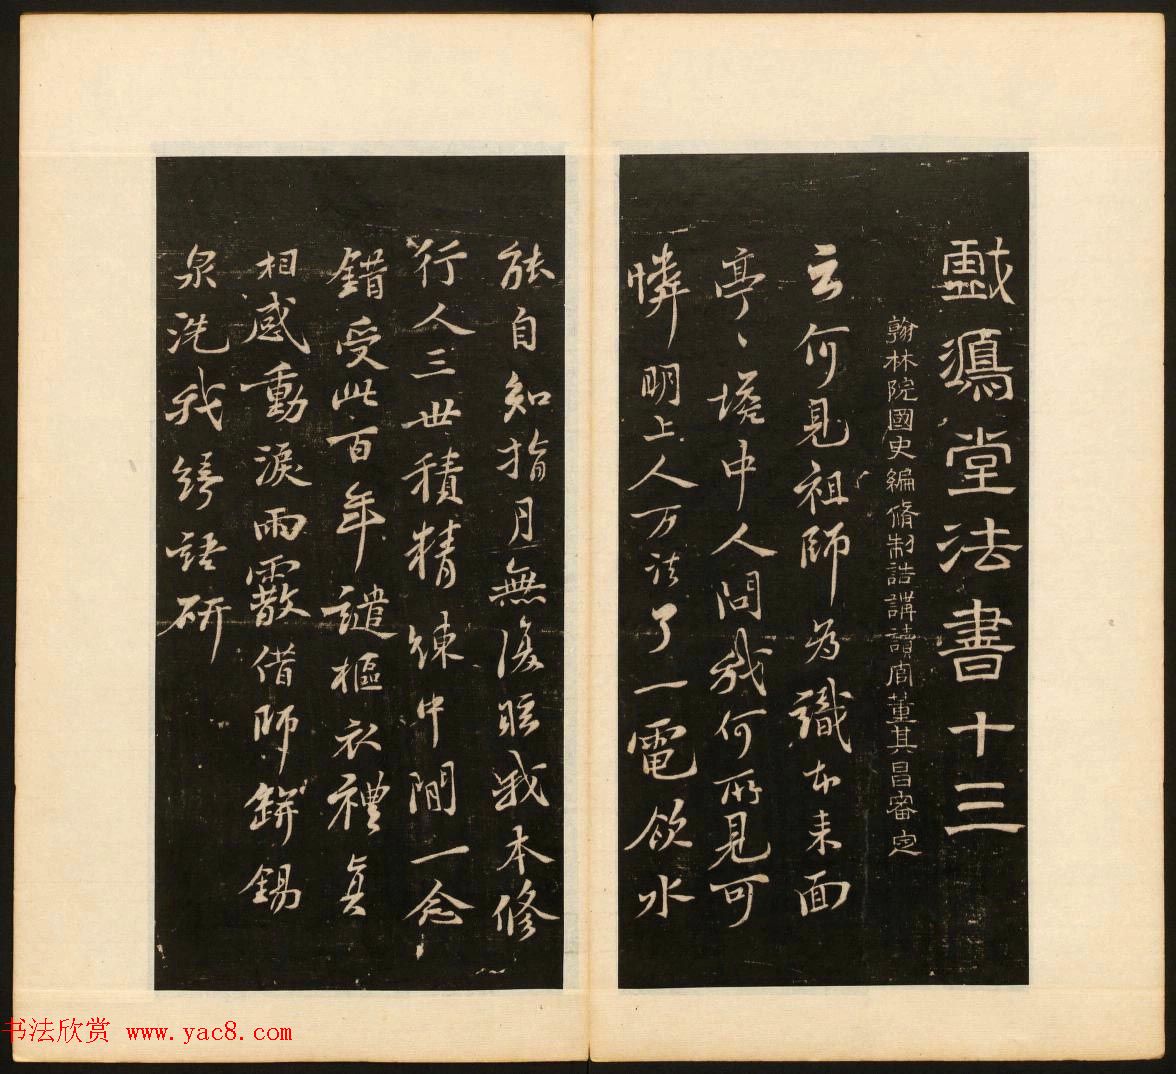 戲鴻堂法書十三
翰林院國史編脩制誥講讀官董其昌審定
云何見祖師為識本来面
亭〻塔中人問我何所見可
憐明上人万法了一電飲水
能自知指月無復眩我本修
行人三世積精練中間一念
錯受此百年譴樞衣禮真
相感動淚雨霰借師錫
泉洗我綺語研
书法欣赏 www.yac8.com